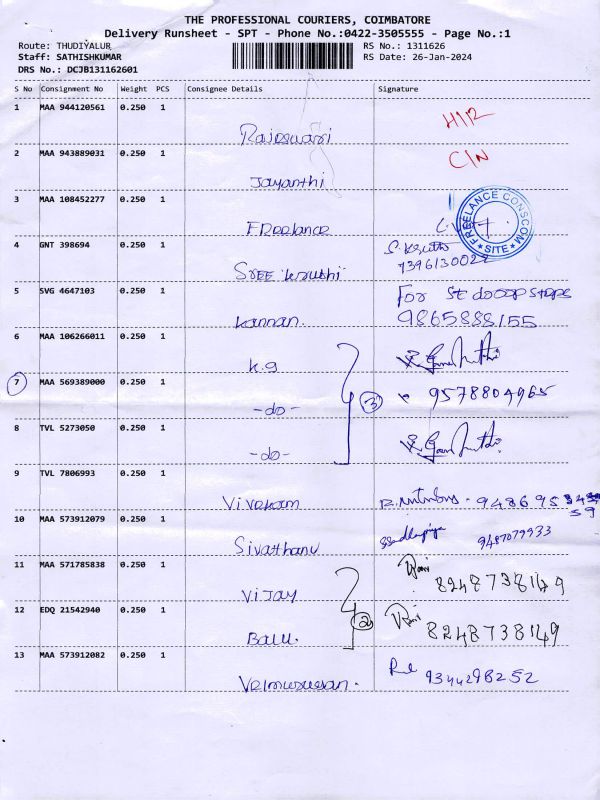 THE PROFESSIONAL COURIERS, COIMBATORE
Delivery Runsheet - SPT - Phone No.:0422-3505555 - Page No.:1
Route: THUDIYALUR RS No.: 1311626
Staff: SATHISHKUMAR RS Date: 26-Jan-2024
DRS No.: DCJB131162601
S No Consignment No Weight PCS Consignee Details Signature
1 MAA 944120561 0.250 1 Rajeswari H/R
2 MAA 943889031 0.250 1 Jayanthi C/N
3 MAA 108452277 0.250 1 FReelance
FREELANCE CONSCOM
SITE
4 GNT 398694 0.250 1 Sree
7396130022
5 SVG 4647103 0.250 1 kannan. For
9865888155
6 MAA 106266011 0.250 1 K.G
7 MAA 569389000 0.250 1 -do- 3 9578804965
8 TVL 5273050 0.250 1 -do-
9 TVL 7806993 0.250 1 Vivekam
10 MAA 573912079 0.250 1 Sivathanu 9487079933
11 MAA 571785838 0.250 1 Vijay 8248738149
12 EDQ 21542940 0.250 1 Balu. 2 8248738149
13 MAA 573912082 0.250 1 Velmurugan. 9344298252